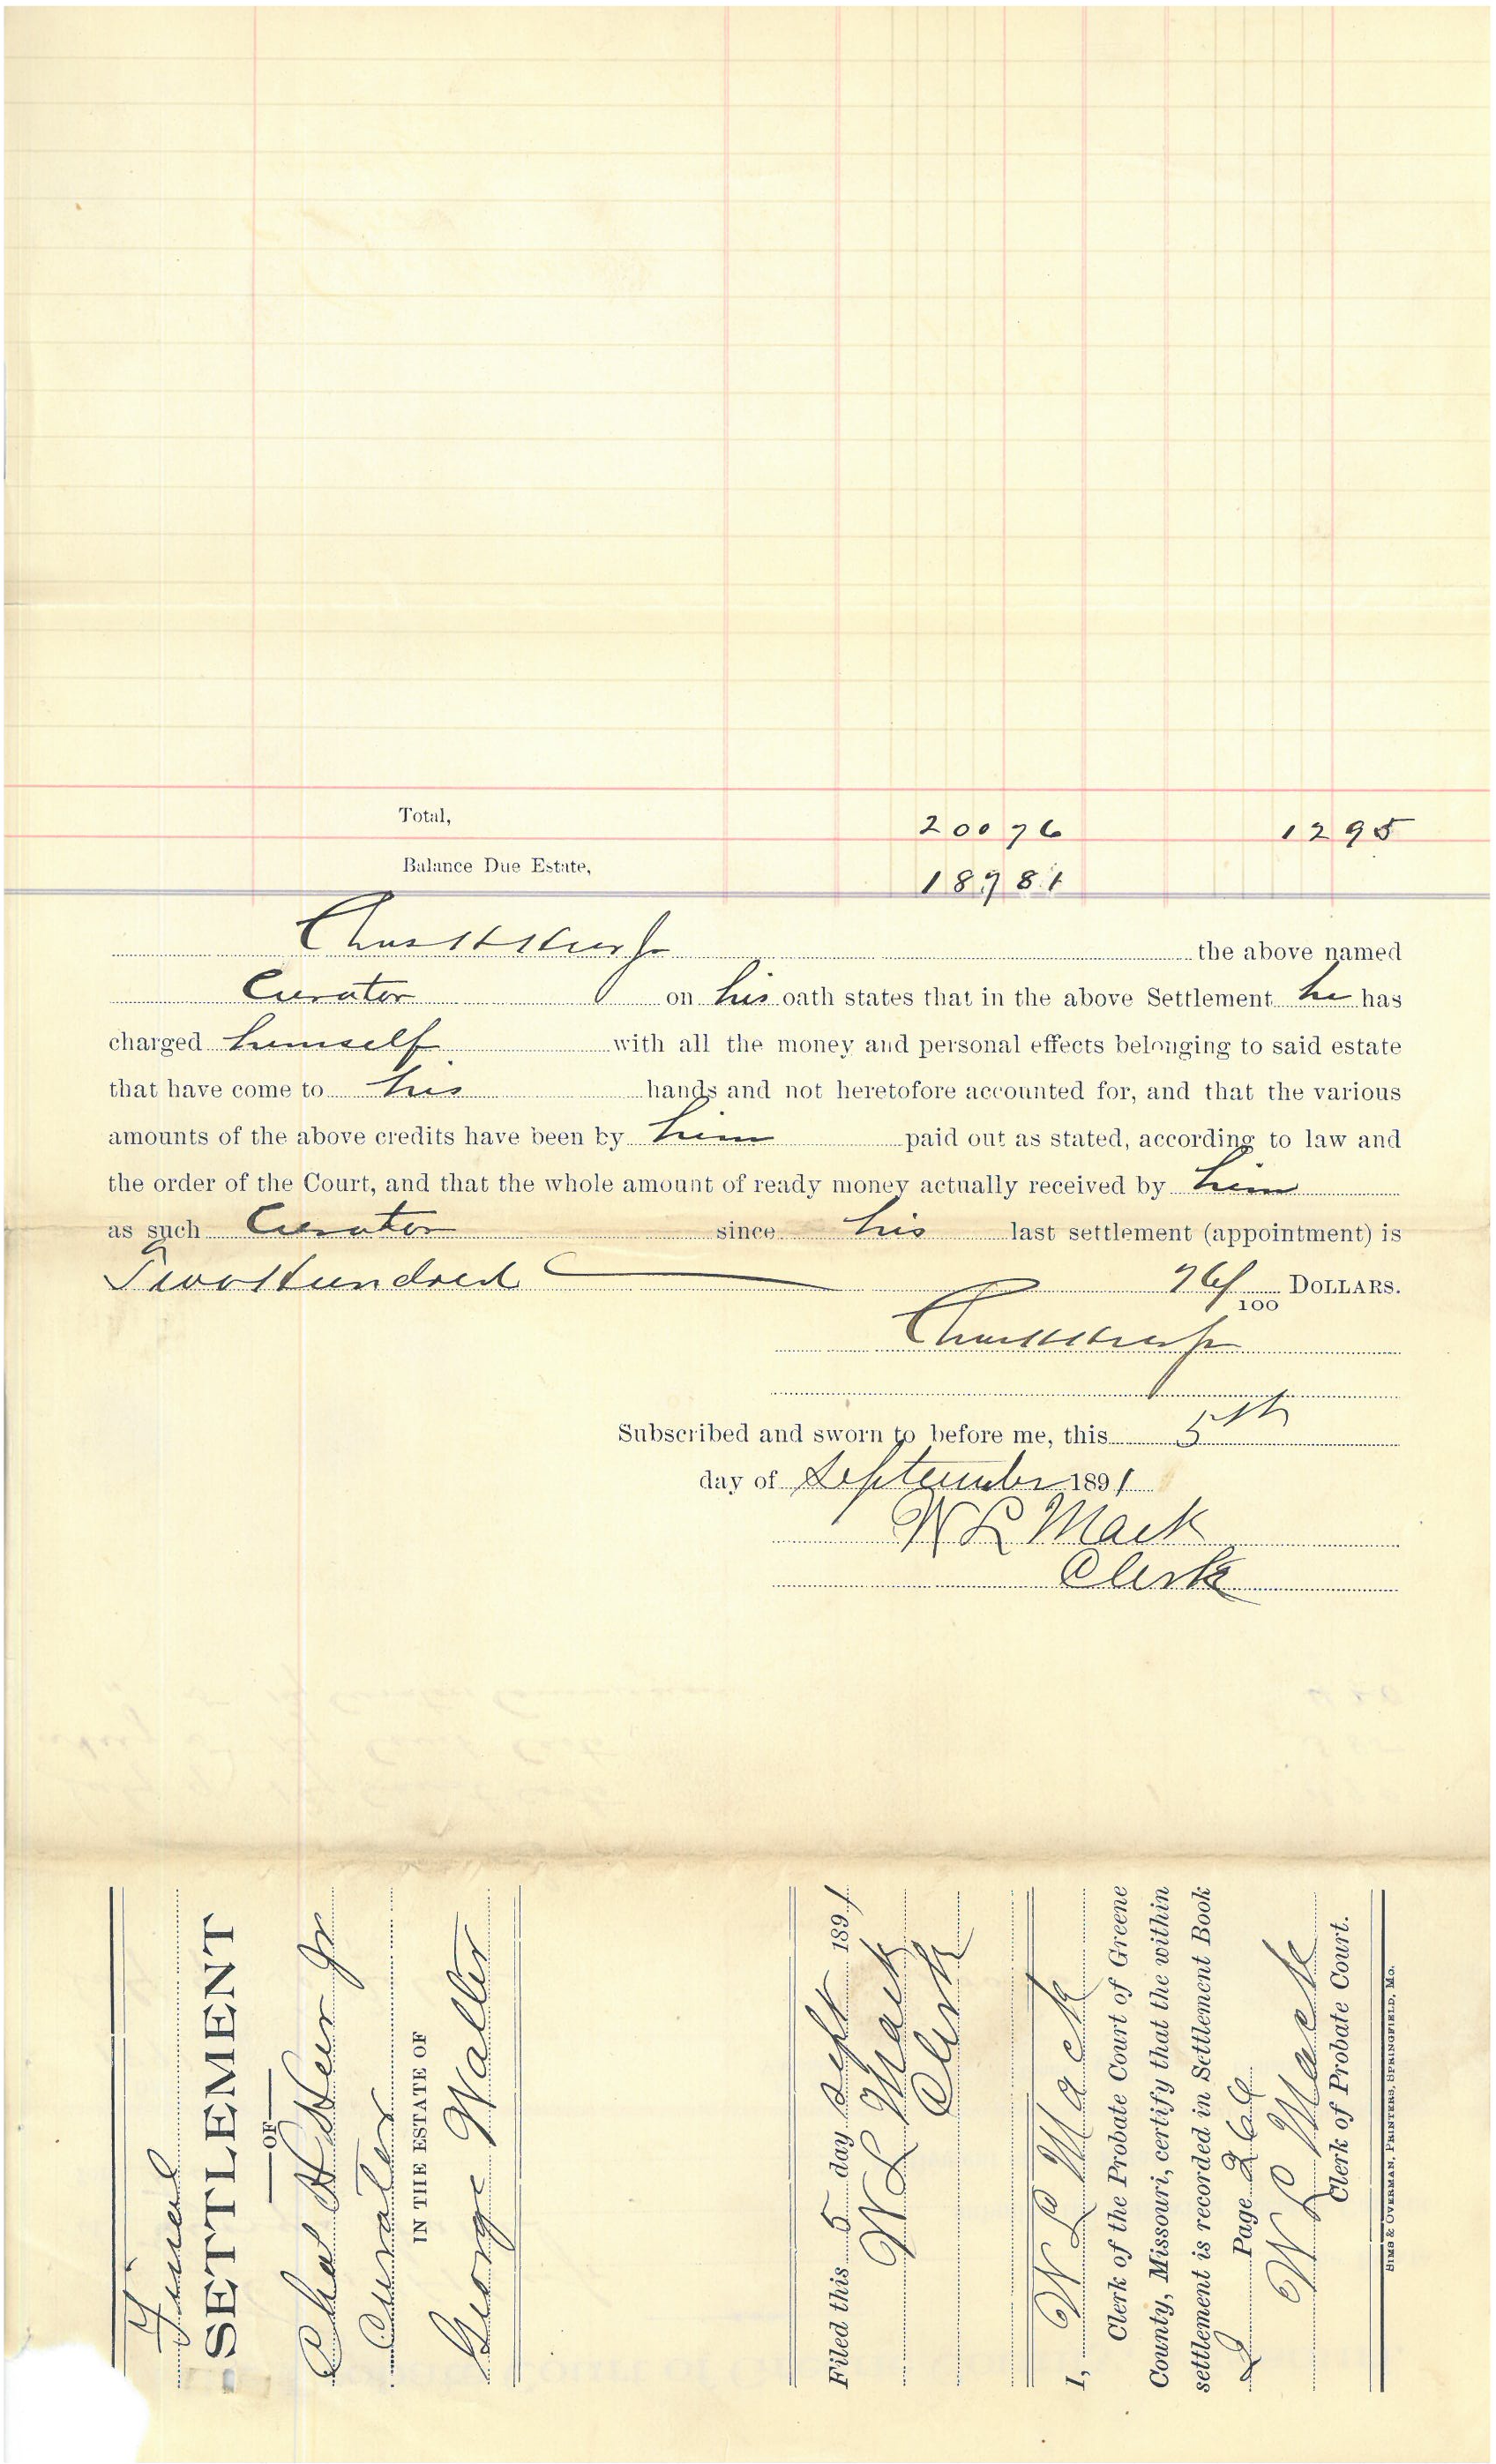 Total, 200 76 12 95
Balance Due Estate, 187 81
Chas H Heer Jr the above named
Curator on his oath states that in the above Settlement he has
charged himself with all the money and personal effects belonging to said estate
that have come to his hands and not heretofore accounted for, and that the various
amounts of the above credits have been by him paid out as stated, according to law and
the order of the Court, and that the whole amount of ready money actually received by him
as such Curator since his last settlement (appointment) is
Two Hundred 76/100 DOLLARS.
Chas H Heer Jr
Subscribed and sworn to before me, this 5th
day of September 1891
W L Mack
Clerk
Final
SETTLEMENT
OF
Chas H Heer Jr
Curator
IN THE ESTATE OF
George Walter
Filed this 5 day Sept 1891
W L Mack
Clerk
I, W L Mack
Clerk of the Probate Court of Greene
County, Missouri, certify that the within
settlement is recorded in Settlement Book
Page 266
W L Mack
Clerk of Probate Court.
SIMS & OVERMAN, PRINTERS, SPRINGFIELD, MO.